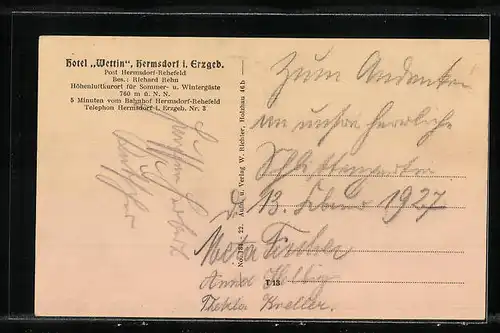 Hotel „Wettin", Hermsdorf i. Erzgeb.
Post Hermsdorf-Rehefeld
Bes.: Richard Rehn
Höhenluftkurort für Sommer- u. Wintergäste
760 m ü. N. N.
5 Minuten vom Bahnhof Hermsdorf-Rehefeld
Telephon Hermsdorf i. Erzgeb. Nr. 3
u. Verlag W. Richter, Holzhau 46b
Zum Andenken
an unsre herrliche
Schlittenpartie
d. 13. 1927
Meta Fischer
Anna Helbig
Thekla Kreller.
T 13